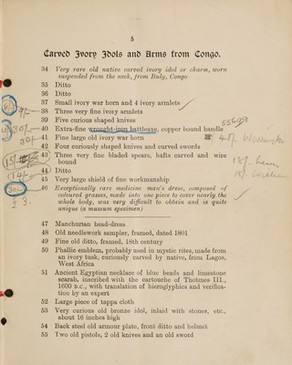 5
Carved Ivory Idols and Arms from Congo.
34 Very rare old native carved ivory idol or charm, worn
suspended from the neck, from Ituly, Congo
35 Ditto
36 Ditto
37 Small ivory war horn and 4 ivory armlets
38 Three very fine ivory armlets
39 Five curious shaped knives
40 Extra-fine wrought-iron battleaxe, copper bound handle
41 Fine large old ivory war horn
42 Four curiously shaped knives and curved swords
43 Three very fine bladed spears, hafts carved and wire
bound
44 Ditto
45 Very large shield of fine workmanship
46 Exceptionally rare medicine man's dress, composed of
coloured grasses, made into one piece to cover nearly the
whole body, was very difficult to obtain and is quite
unique (a museum specimen)
47 Manchurian head-dress
48 Old needlework sampler, framed, dated 1801
49 Fine old ditto, framed, 18th century
50 Phallic emblem, probably used in mystic rites, made from
an ivory tusk, curiously carved by native, from Lagos,
West Africa
51 Ancient Egyptian necklace of blue beads and limestone
scarab, inscribed with the cartouche of Thothmes III.,
1600 B.C., with translation of hieroglyphics and verifica-
tion by an expert
52 Large piece of tappa cloth
53 Very curious old bronze idol, inlaid with stones, etc.,
about 16 inches high
54 Back steel old armour plate, front ditto and helmet
55 Two old pistols, 2 old knives and an old sword